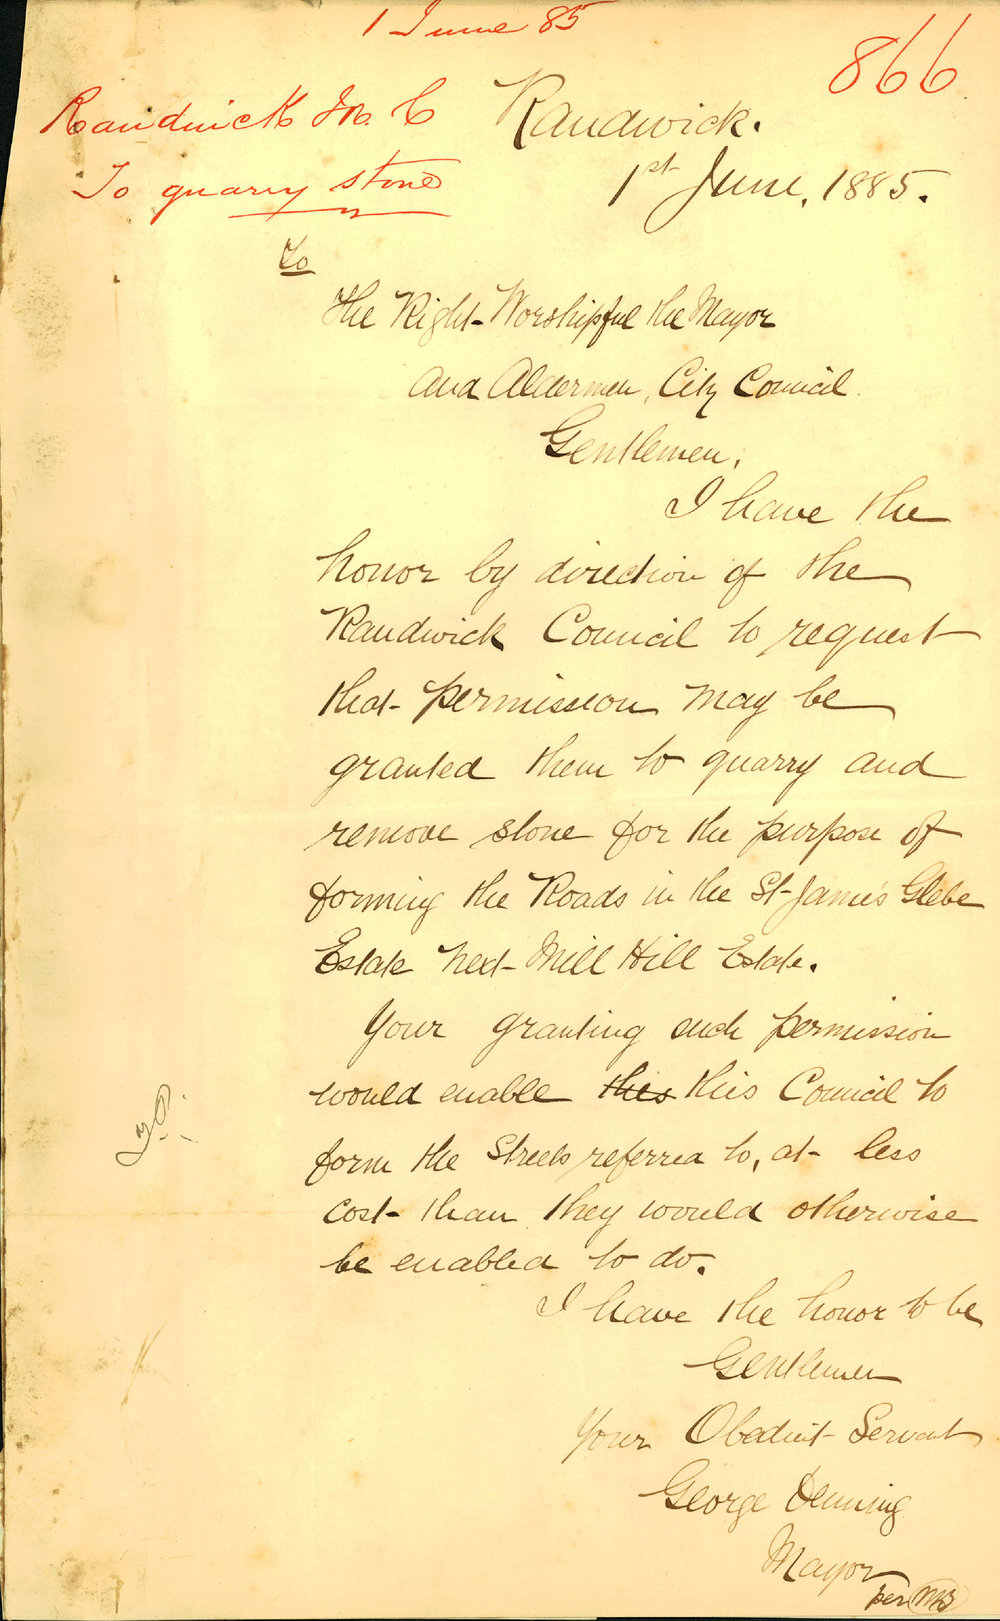 1 June 85
866
Randwick M. C
To quarry stone
Randwick.
1st June, 1885.
To
The Right Worshipful the Mayor
and Aldermen, City Council.
Gentlemen,
I have the
honor by direction of the
Randwick Council to request
that permission may be
granted them to quarry and
remove stone for the purpose of
forming the Roads in the St James Glebe
Estate next Mill Hill Estate.
Your granting such permission
would enable this this Council to
form the Streets referred to, at less
cost than they would otherwise
be enabled to do.
I have the honor to be
Gentlemen
Your Obedient Servant
George Denning
Mayor
per